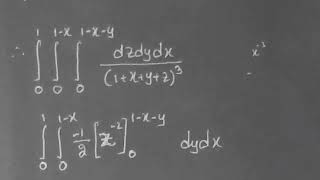 ∴ ∫₀¹ ∫₀^{1-x} ∫₀^{1-x-y} dzdydx / (1+x+y+z)³ x⁻³
∫₀¹ ∫₀^{1-x} -1/2 [z⁻²]₀^{1-x-y} dydx